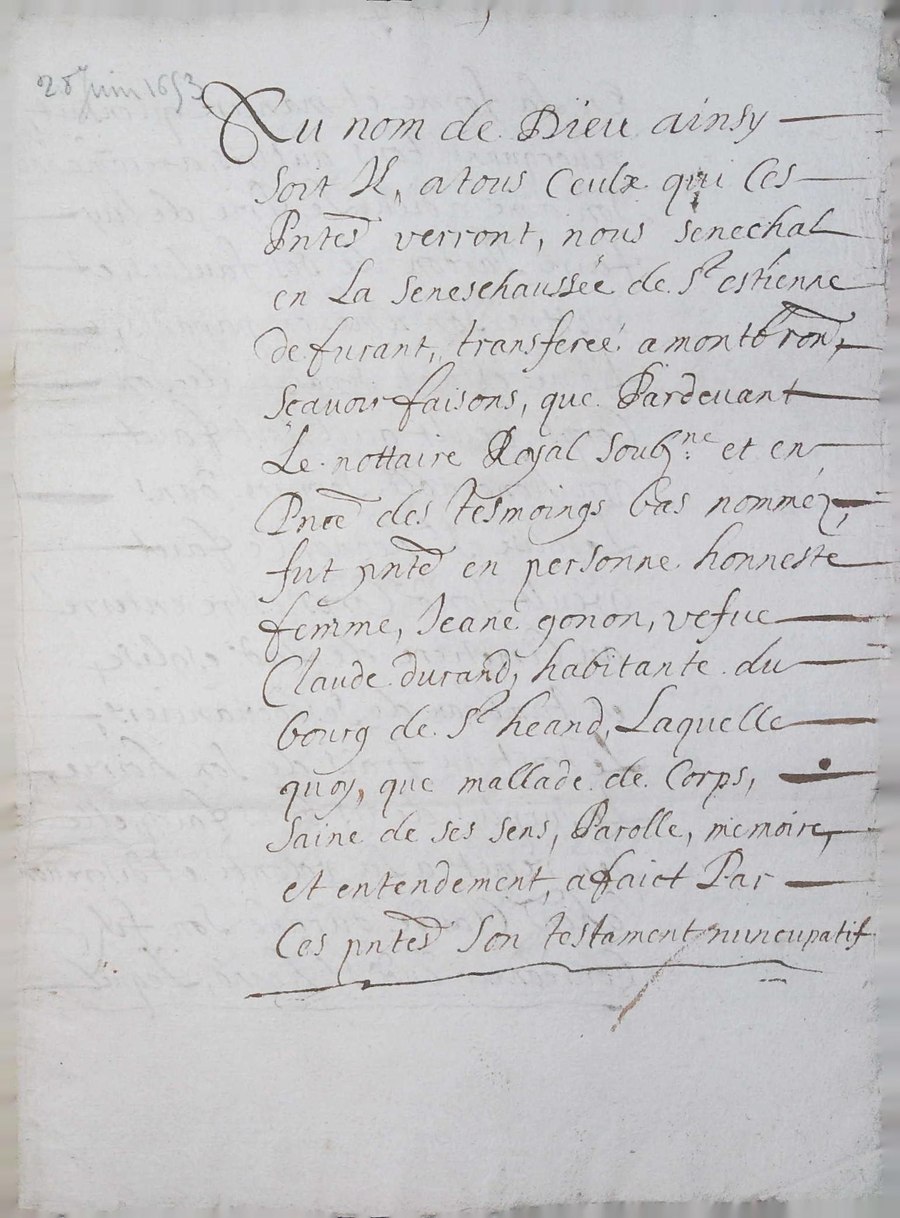 28 Juin 1653
Au nom de Dieu ainsy
soit Il, a tous Ceulx qui Ces
Pntes verront, nous senechal
en La seneschaussée de St estienne
de furant, transferée a montbron,
scavoir faisons, que Pardevant
Le nottaire Royal soubne et en
Pnce des tesmoings bas nomméz,
fut pnte en personne honneste
femme, Jeane gonon, vefue
Claude durand, habitante du
bourg de St heand, Laquelle
quoy, que mallade de Corps,
saine de ses sens, Parolle, memoire,
et entendement, a faict Par
Ces pntes son testament nuncupatif